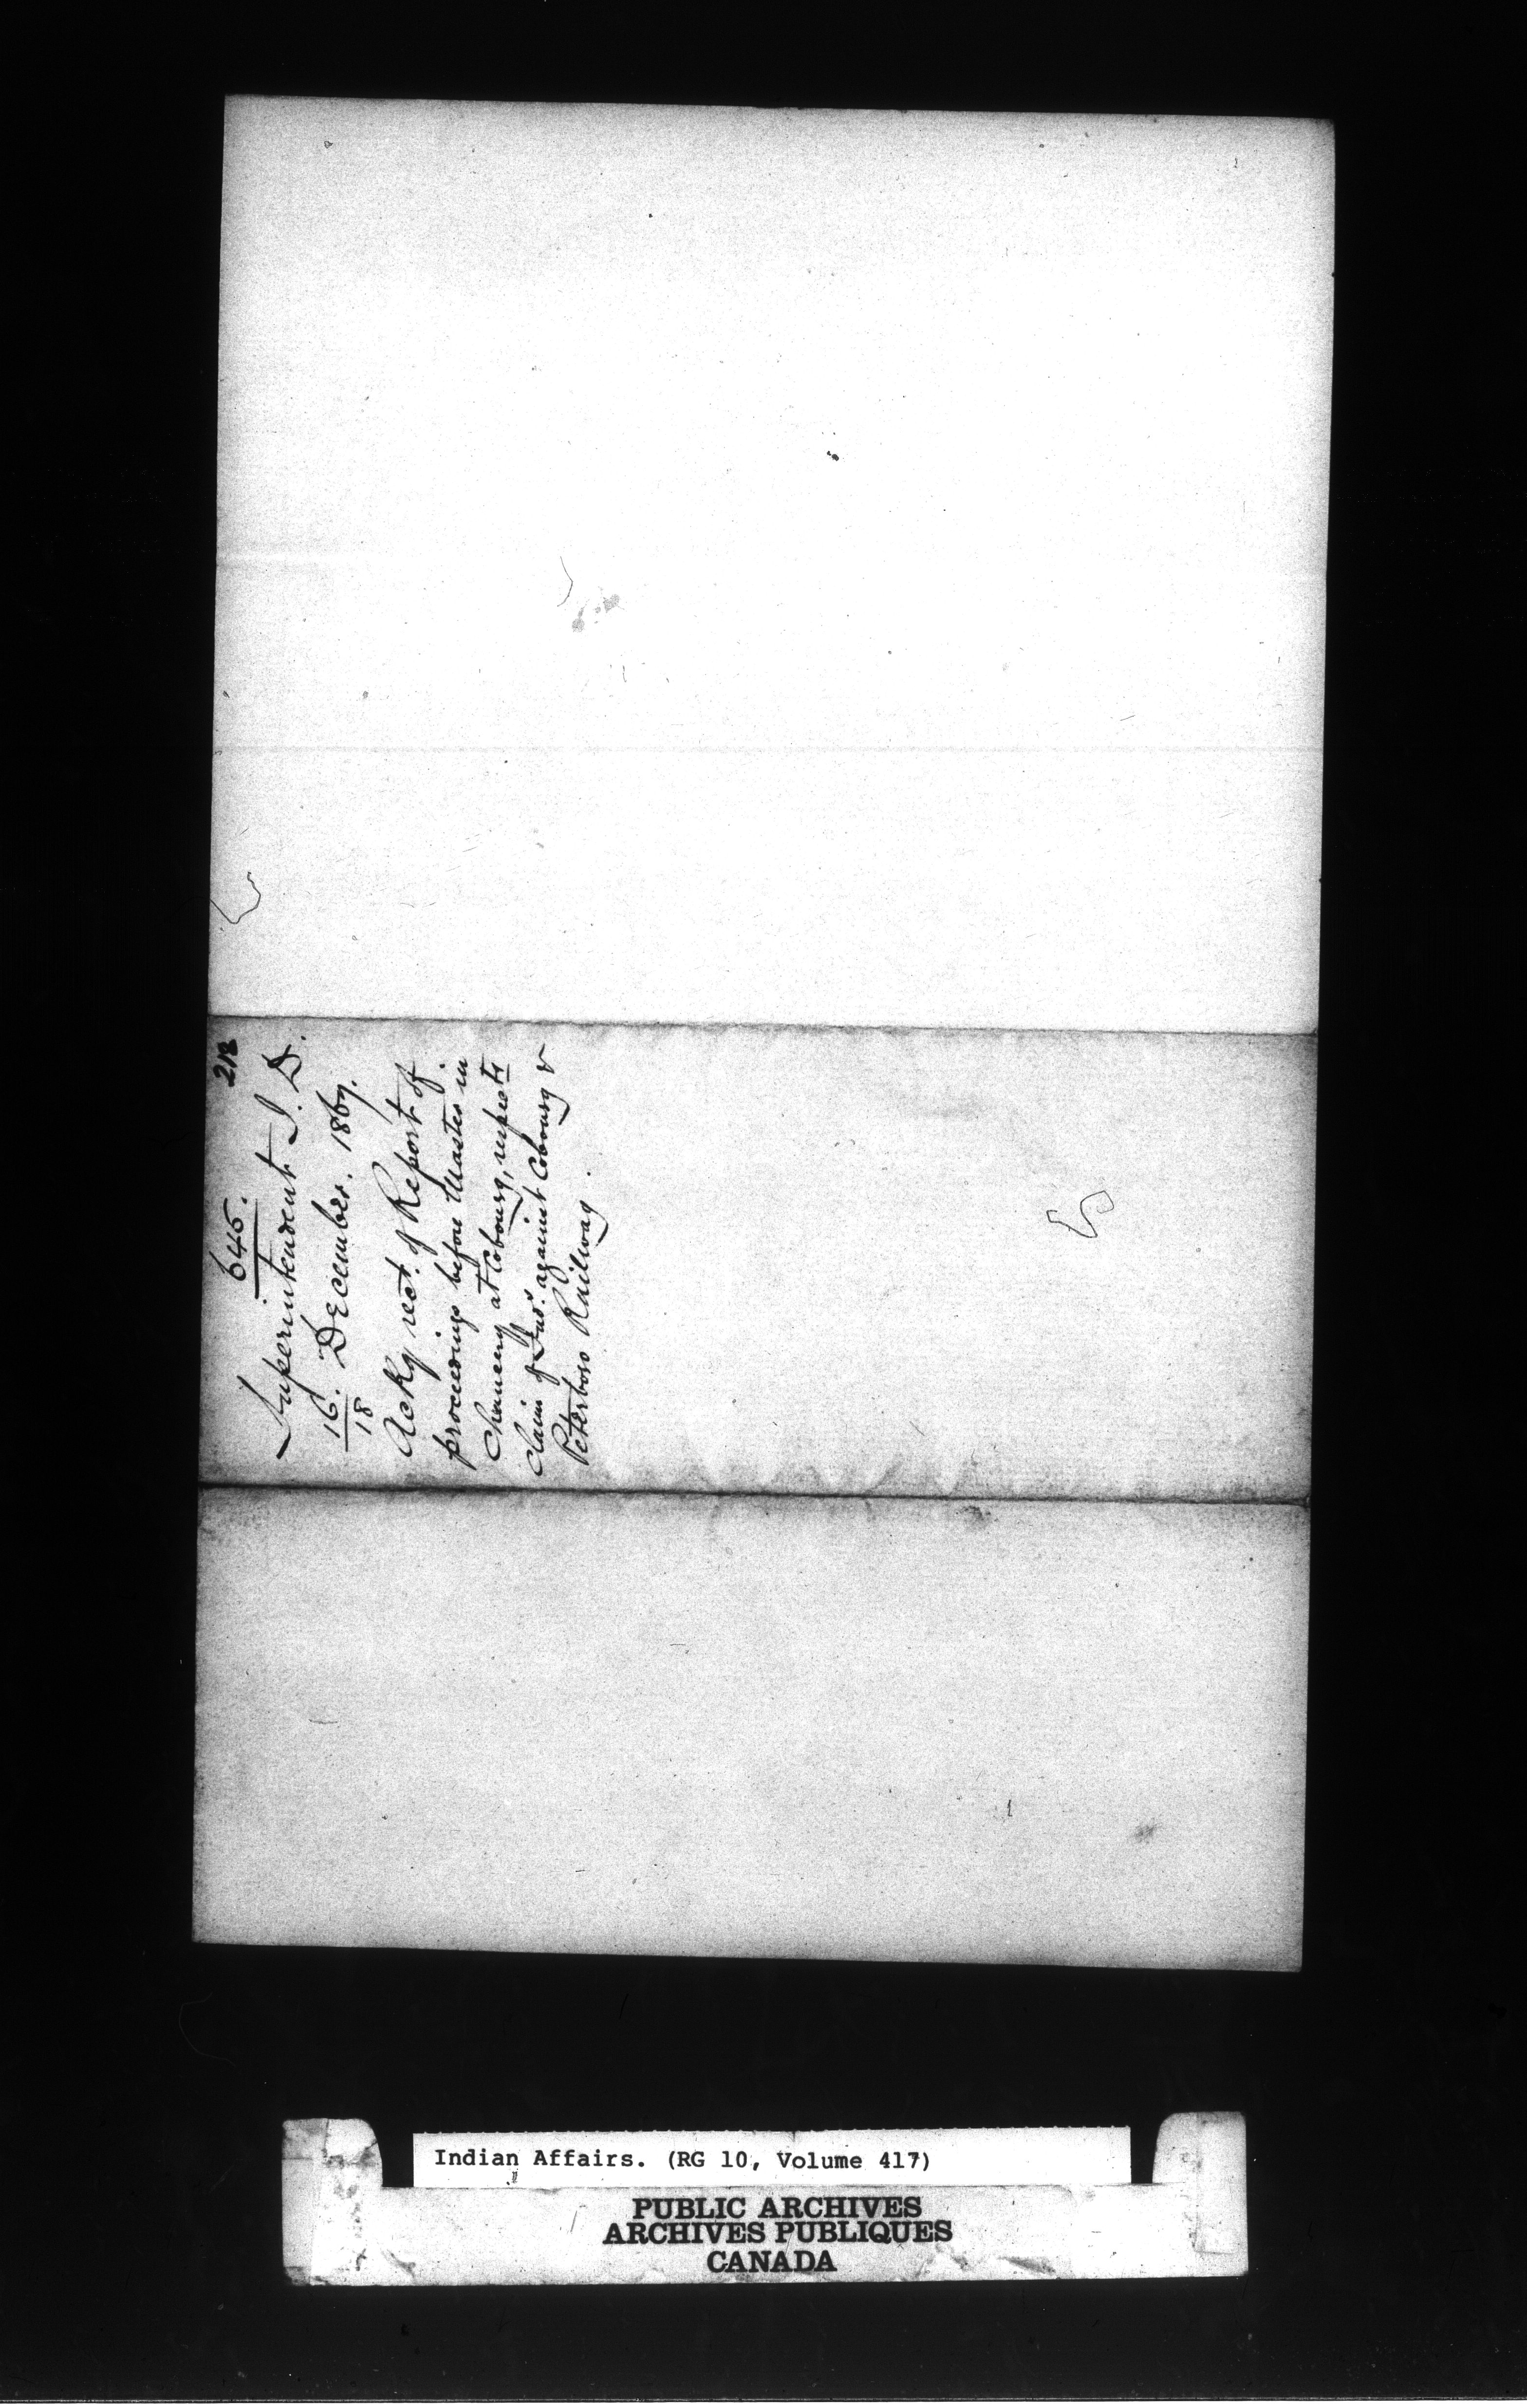 645.
Superintendent I. D.
16. December. 1867.
18
Ackg rect. of Report of
proceedings before Master in
Chancery at Cobourg, respectg
Claim of Inds. against Cobourg &
Peterboro Railway.
Indian Affairs. (RG 10, Volume 417)
PUBLIC ARCHIVES
ARCHIVES PUBLIQUES
CANADA